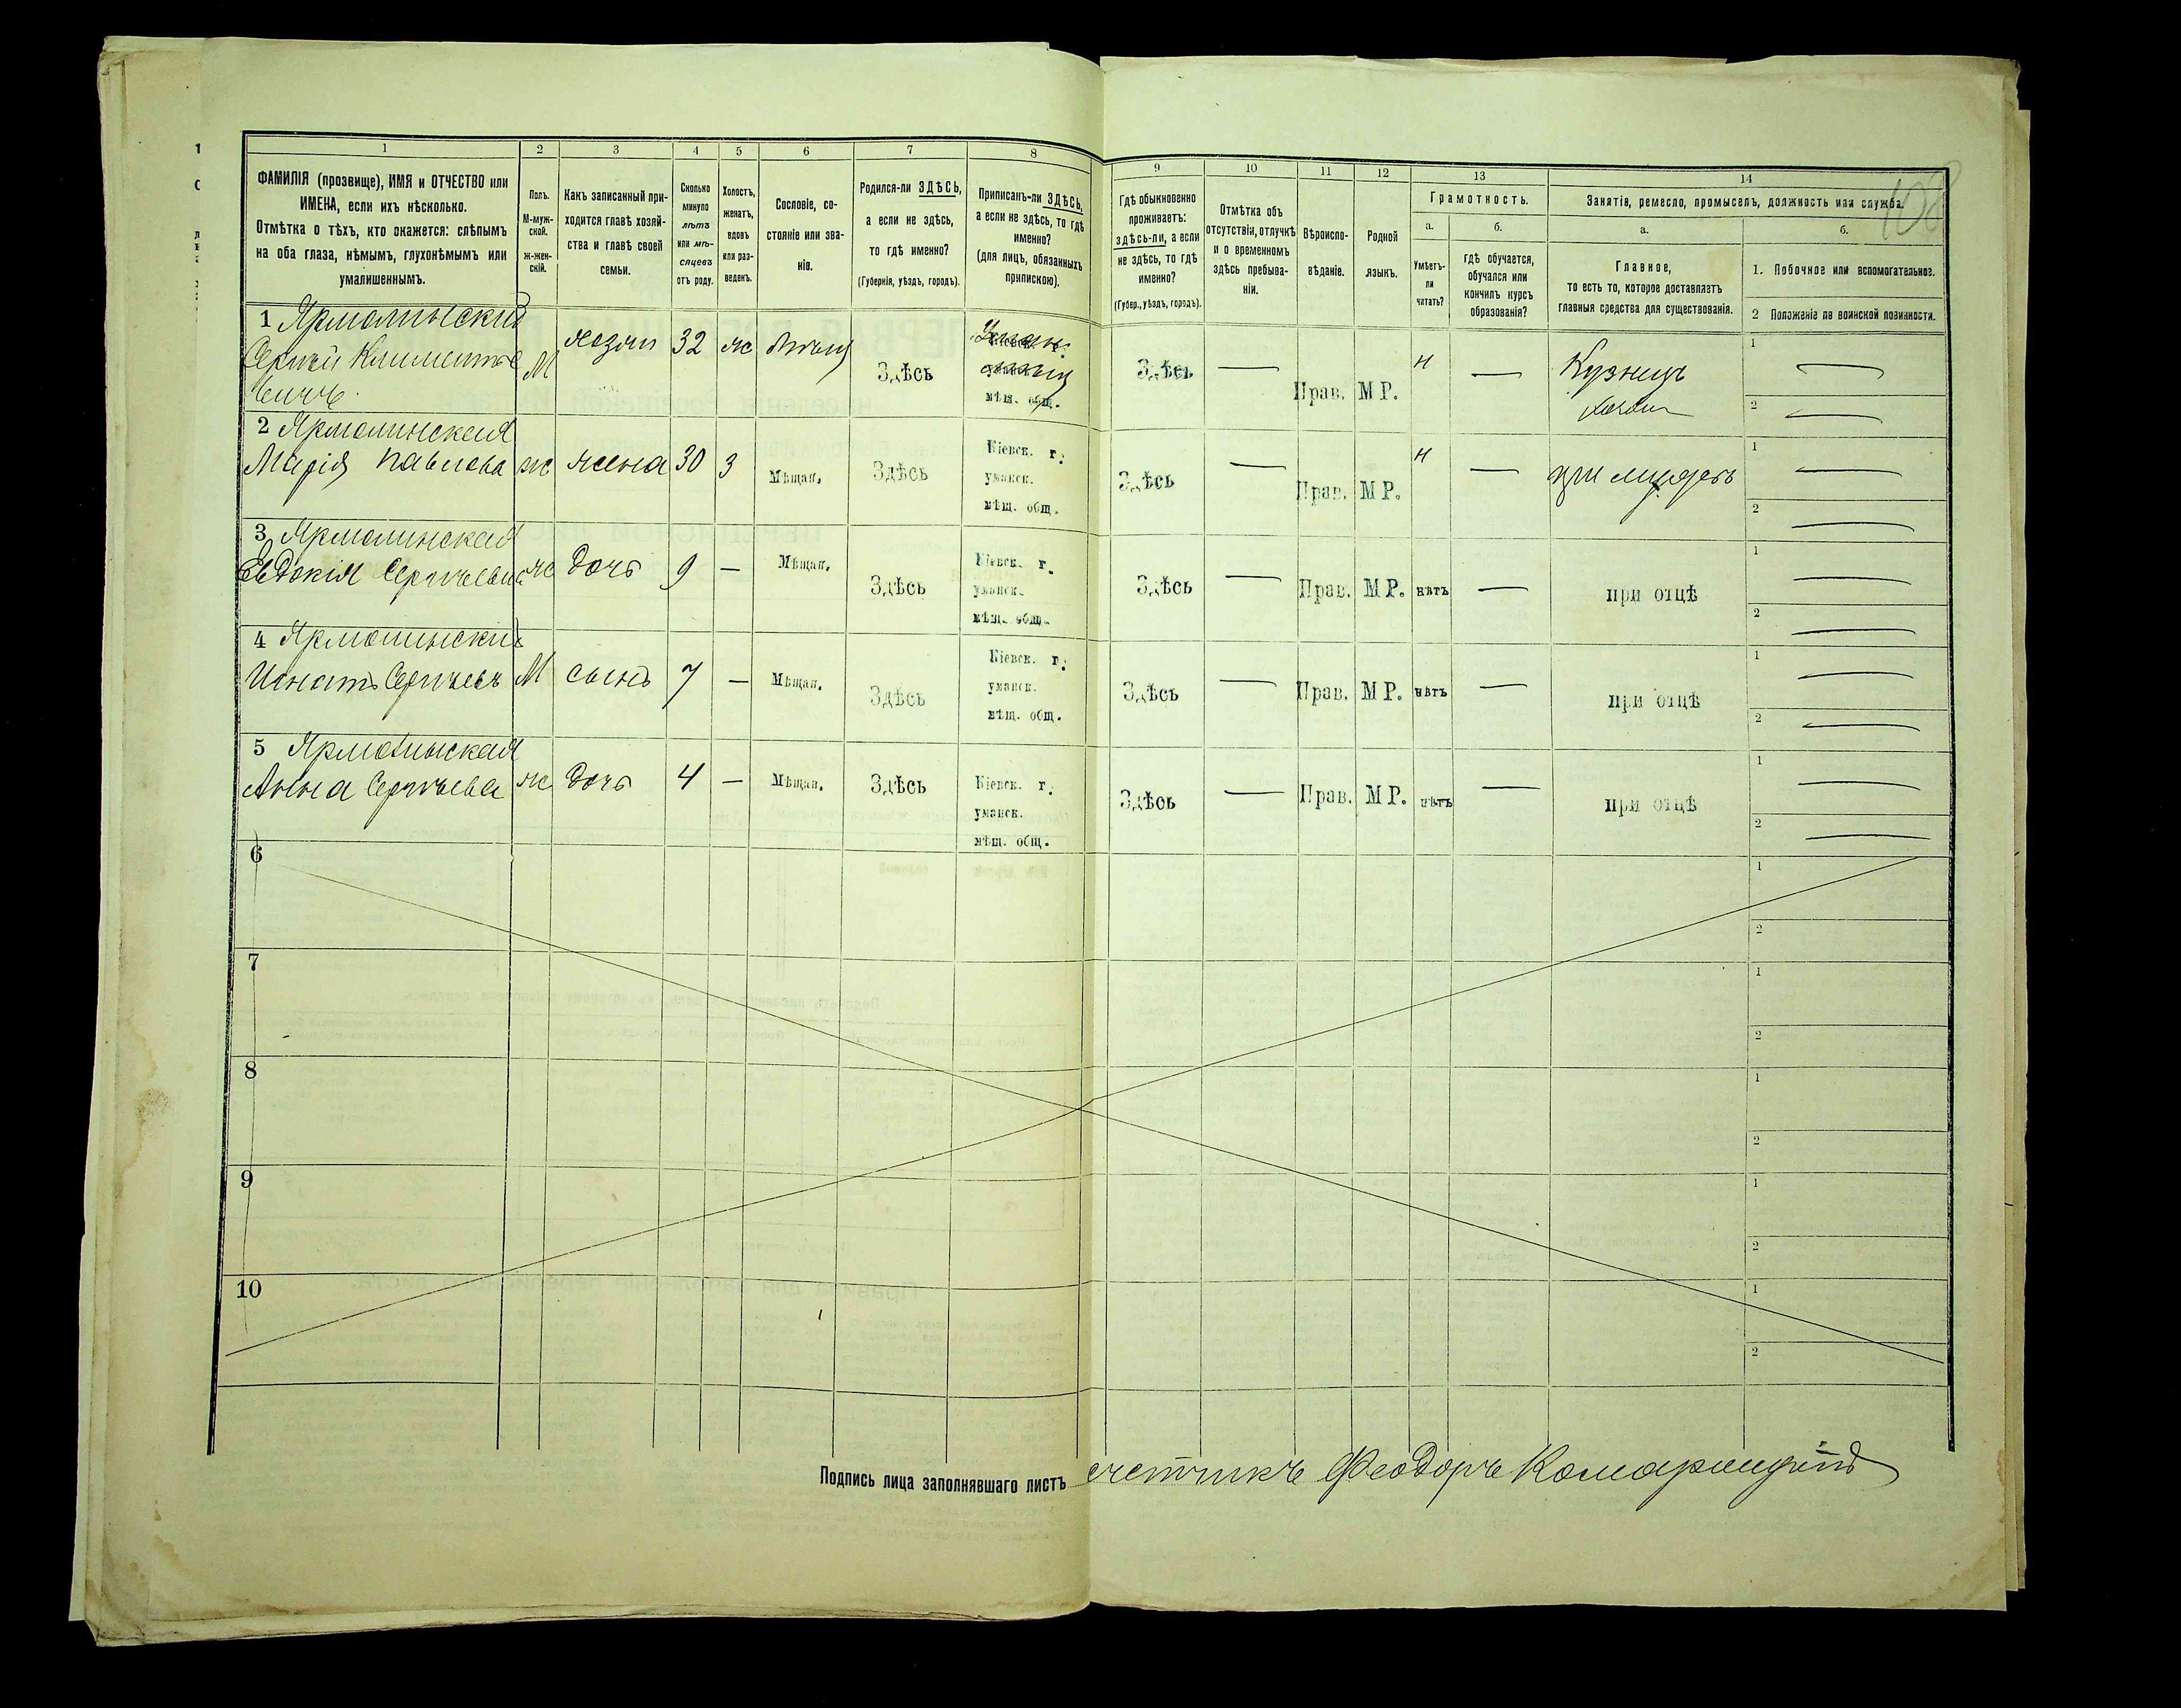 1 2 3 4 5 6 7 8 9 10 11 12 13 14
108
ФАМИЛІЯ (прозвище), ИМЯ и ОТЧЕСТВО или
ИМЕНА, если ихъ нѣсколько.
Отмѣтка о тѣхъ, кто окажется: слѣпымъ
на оба глаза, нѣмымъ, глухонѣмымъ или
умалишеннымъ.
Полъ.
М-муж-
ской.
Ж-жен-
скій.
Какъ записанный при-
ходится главѣ хозяй-
ства и главѣ своей
семьи.
Сколько
минуло
лѣтъ
или мѣ-
сяцевъ
отъ роду.
Холостъ,
женатъ,
вдовъ
или раз-
веденъ.
Сословіе, со-
стояніе или зва-
ніе.
Родился-ли ЗДѢСЬ,
а если не здѣсь,
то гдѣ именно?
(Губернія, уѣздъ, городъ).
Приписанъ-ли ЗДѢСЬ,
а если не здѣсь, то гдѣ
именно?
(для лицъ, обязанныхъ
припискою).
Гдѣ обыкновенно
проживаетъ:
здѣсь-ли, а если
не здѣсь, то гдѣ
именно?
(Губер., уѣздъ, городъ).
Отмѣтка объ
отсутствіи, отлучкѣ
и о временномъ
здѣсь пребыва-
ніи.
Вѣроиспо-
вѣданіе.
Родной
языкъ.
Грамотность.
а.
Умѣетъ-
ли
читать?
б.
гдѣ обучается,
обучался или
кончилъ курсъ
образованія?
Занятіе, ремесло, промыселъ, должность или служба.
а.
Главное,
то есть то, которое доставляетъ
главныя средства для существованія.
б.
1. Побочное или вспомогательное.
2 Положеніе по воинской повинности.
1 Ярмолинскій
Сергѣй Климентье
вичъ
М хозяи 32 ж Мѣщ Здѣсь
мѣщ. общ.
Здѣсь — Прав. МР. н — Кузнецъ
1 —
2 —
2 Ярмолинская
Марія Павлова ж жена 30 З Мѣщан. Здѣсь
Кіевск. г.
уманск.
мѣщ. общ.
Здѣсь — Прав. МР. н — при мужѣ
1 —
2 —
3 Ярмолинская
Евдокія Сергѣевна ж дочь 9 — Мѣщан. Здѣсь
Кіевск. г.
уманск.
мѣщ. общ.
Здѣсь — Прав. МР. нѣтъ — при отцѣ
1 —
2 —
4 Ярмолинскій
Игнатъ Сергѣевъ М сынъ 7 — Мѣщан. Здѣсь
Кіевск. г.
уманск.
мѣщ. общ.
Здѣсь — Прав. МР. нѣтъ — при отцѣ
1 —
2 —
5 Ярмолинская
Анна Сергѣева ж дочь 4 — Мѣщан. Здѣсь
Кіевск. г.
уманск.
мѣщ. общ.
Здѣсь — Прав. МР. нѣтъ — при отцѣ
1 —
2 —
6
1
2
7
1
2
8
1
2
9
1
2
10
1
2
Подпись лица заполнявшаго листъ счетчикъ Феодоръ Комарницкій